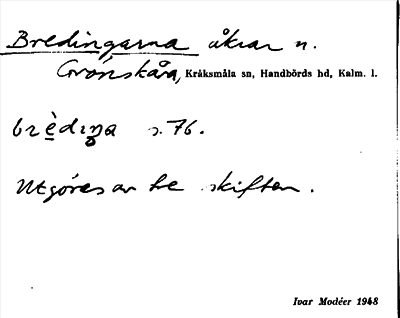 Bredingarna åkrar n.
Grönskåra, Kråksmåla sn, Handbörds hd, Kalm. l.
brèdiŋa s. 76.
Utgöres av tre skiften.
Ivar Modéer 1948